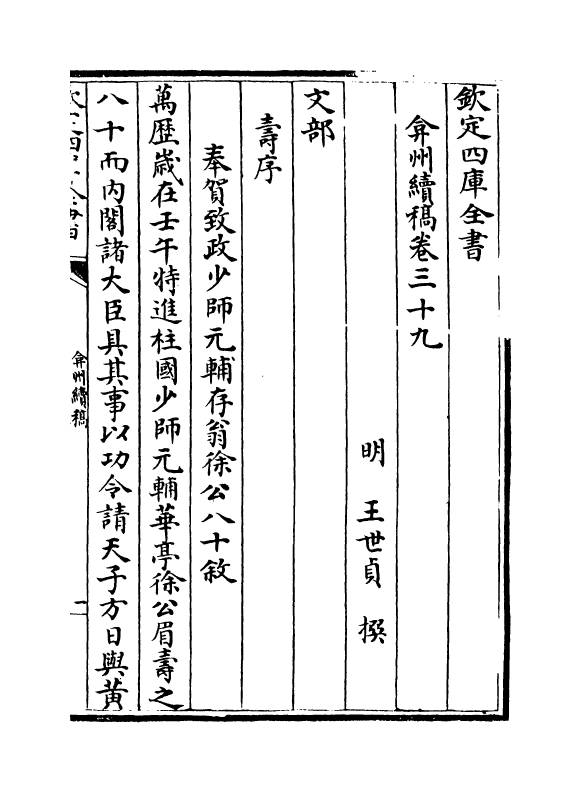 欽定四庫全書
弇州續稿卷三十九
明 王世貞 撰
文部
壽序
奉賀致政少師元輔存翁徐公八十敘
萬歷歲在壬午特進柱國少師元輔華亭徐公眉壽之
八十而內閣諸大臣具其事以功令請天子方日與黃
弇州續稿
一